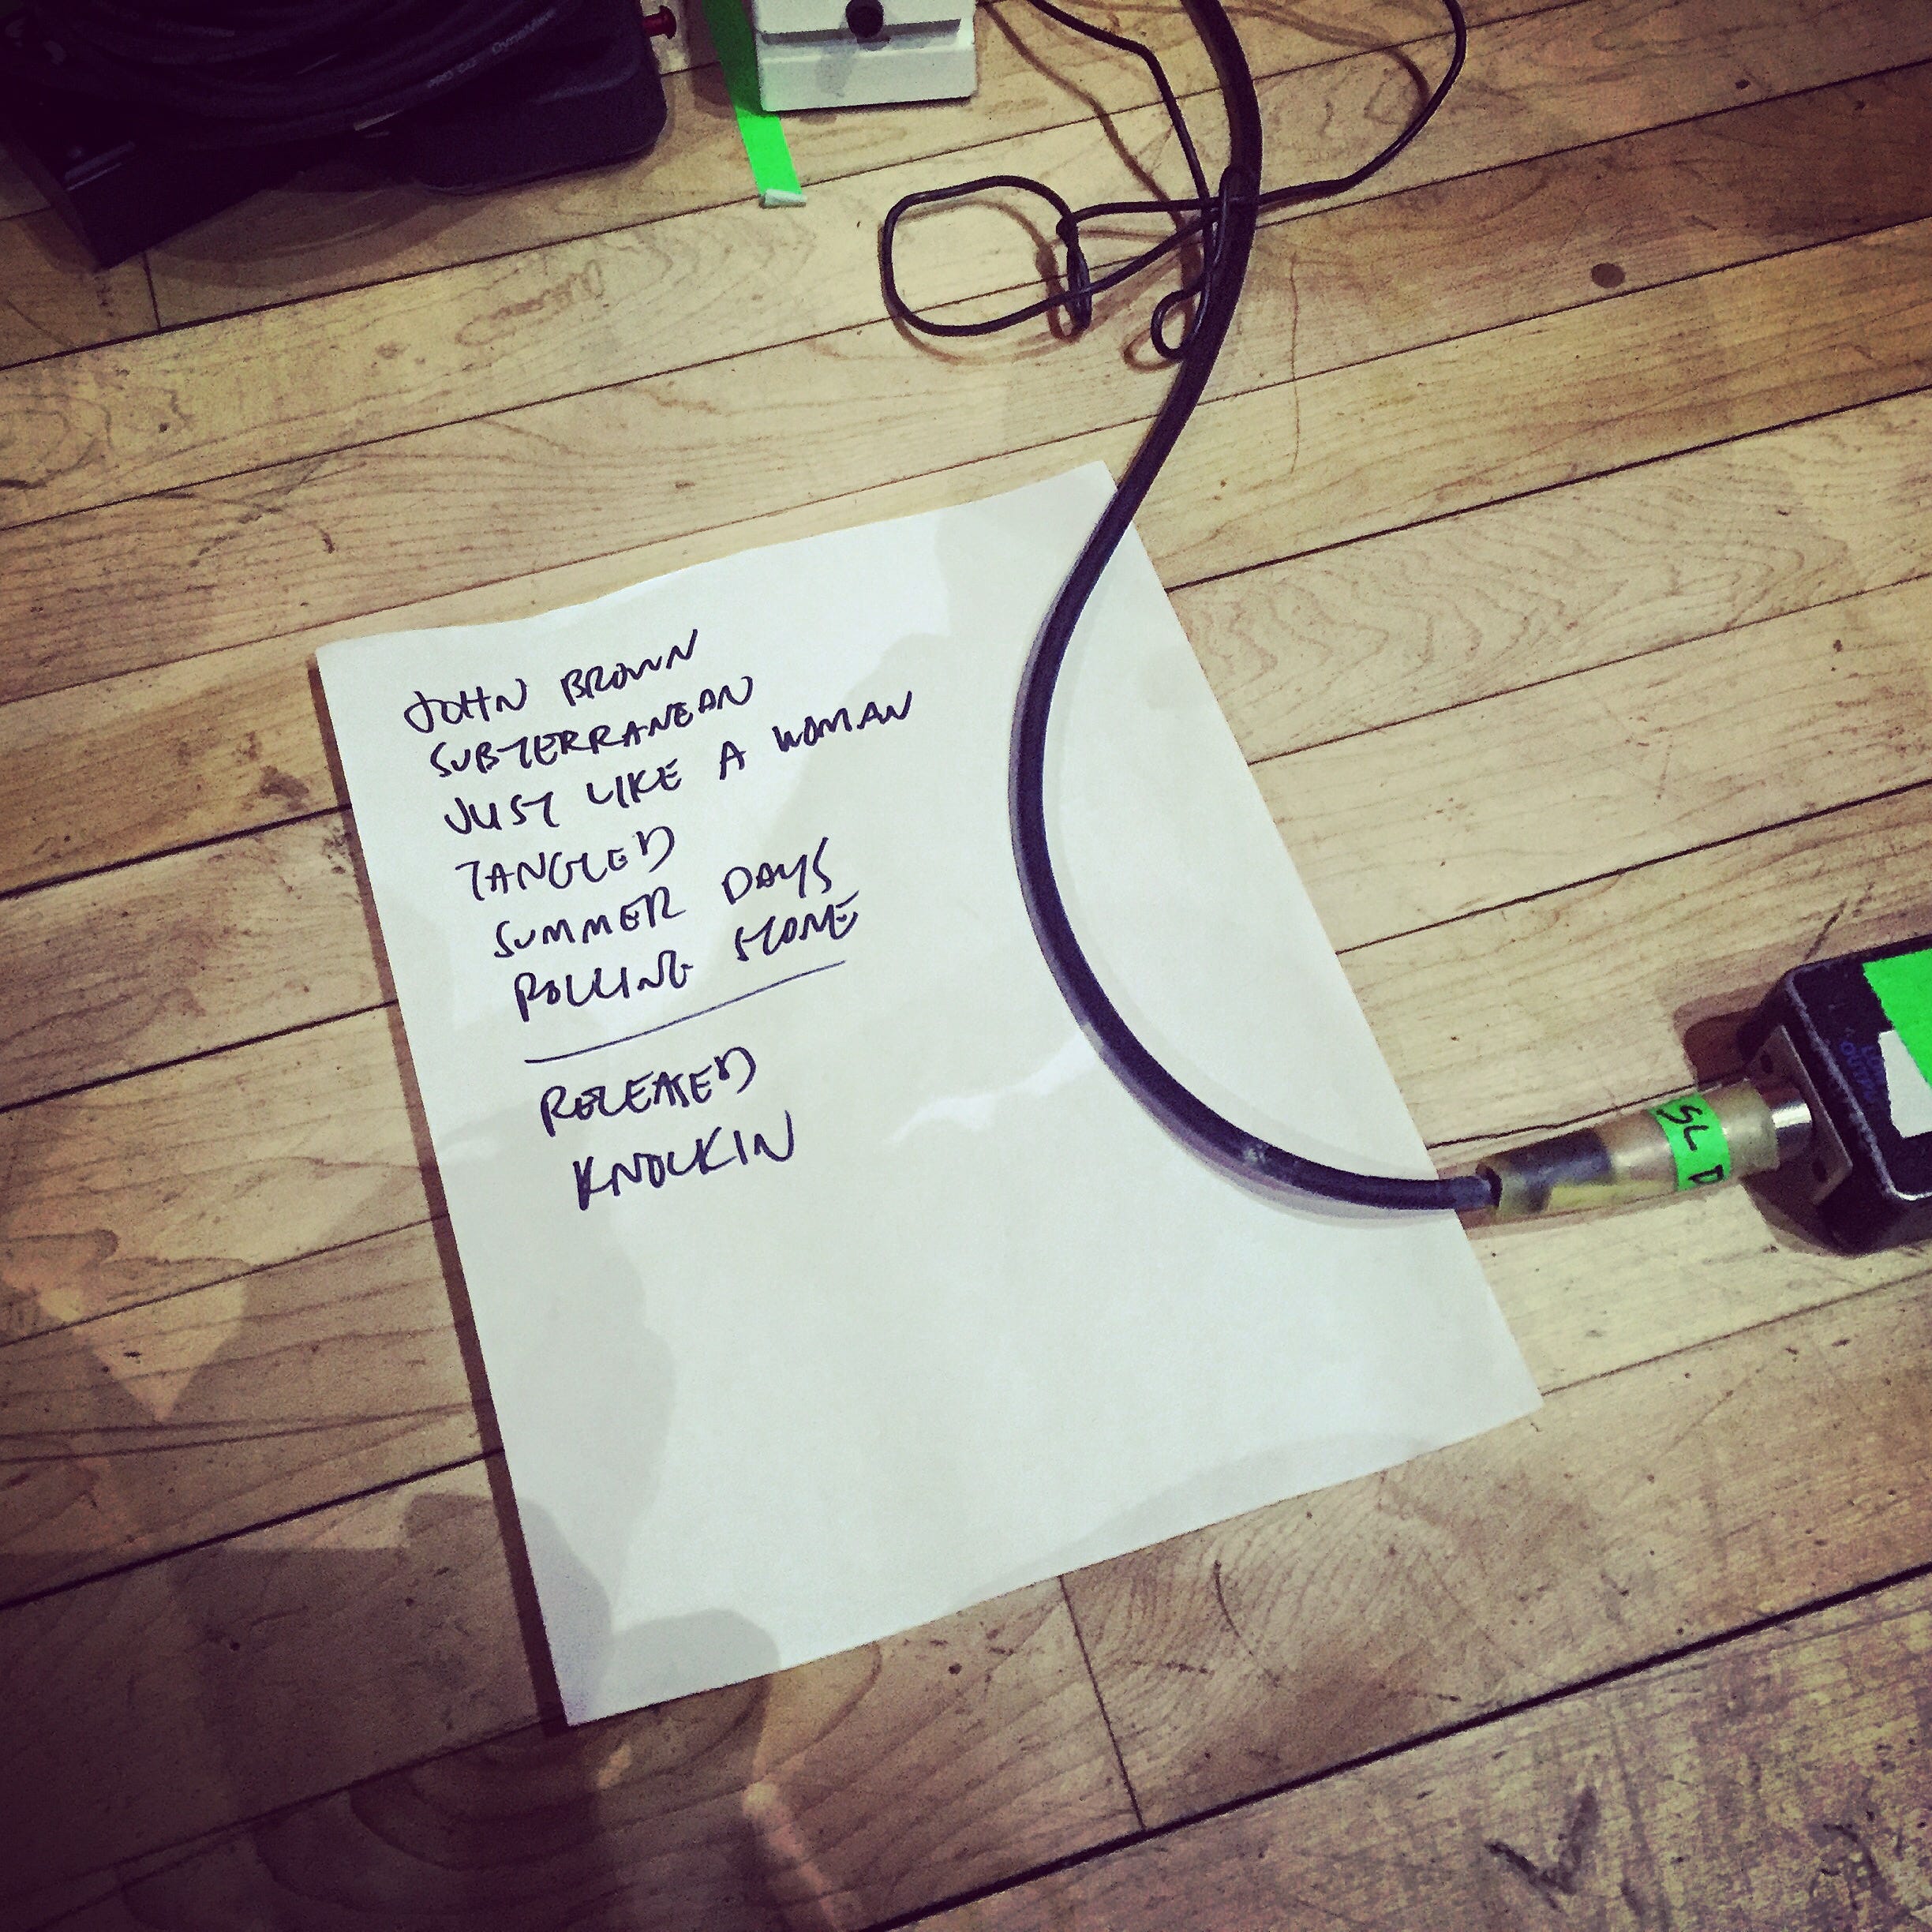 JOHN BROWN
SUBTERRANEAN
JUST LIKE A WOMAN
TANGLED
SUMMER DAYS
ROLLING STONE
RELEASED
KNOCKIN
SL D